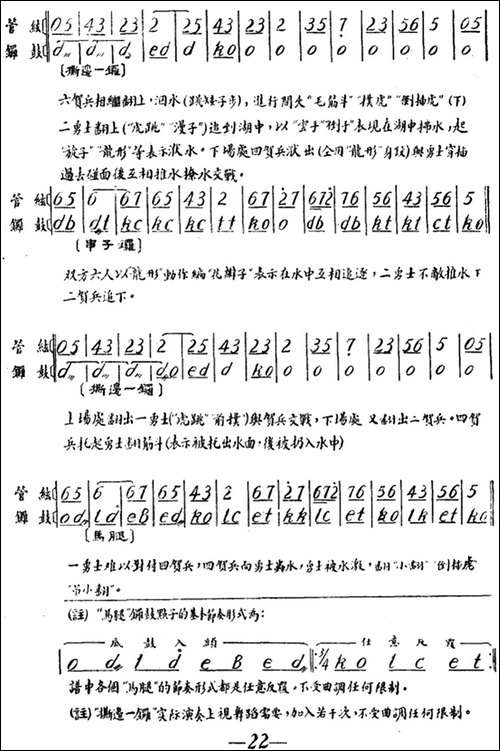 管絃 0 5 | 4 3 | 2 3 | 2 | 2 5 | 4 3 | 2 3 | 2 | 3 5 | 7 | 2 3 | 5 6 | 5 | 0 5
鑼鼓 d | d | d | ed | d | ko | o | o | o | o | o | o | o | o
〔撕邊一鑼〕
六賀兵相繼翻上，泅水(跳矮子步)，進行間夾"毛筋斗""撲虎""倒插虎"(下)
二勇士翻上("虎跳""漫子")追到湖中，以"雲手""倒手"表现在湖中拂水，起
等表示洑水。下場處四賀兵洑出(全用"龍形"身段)與勇士穿插
過去碰面後互相推水撩水交戰。
管絃 6 5 | 6 | 6 7 | 6 5 | 4 3 | 2 | 6 7 | 2 7 | 6 7 2 | 7 6 | 5 6 | 4 3 | 5 6 | 5
鑼鼓 db | dt | kc | kc | kc | tt | ko | o | db | db | kt | kt | ct | ko
〔串子鑼〕
双方六人以"龍形"動作編"扎辮子"表示在水中互相追逐，二勇士不敵推水下
二賀兵追下。
管絃 0 5 | 4 3 | 2 3 | 2 | 2 5 | 4 3 | 2 3 | 2 | 3 5 | 7 | 2 3 | 5 6 | 5 | 0 5
鑼鼓 d | d | d | do | ed | d | ko | o | o | o | o | o | o | o
〔撕邊一鑼〕
上場處翻出一勇士("虎跳""前撲")與賀兵交戰，下場處又翻出二賀兵。四賀
兵扎起勇士翻筋斗(表示被扎出水面，後被扔入水中)
管絃 6 5 | 6 | 6 7 | 6 5 | 4 3 | 2 | 6 7 | 2 7 | 6 7 2 | 7 6 | 5 6 | 4 3 | 5 6 | 5
鑼鼓 od | td | eB | ed | ko | lc | et | kk | lc | et | ko | lk | et | ko
〔馬腿〕
一勇士难以對付四賀兵，四賀兵向勇士轟水，勇士被水激，翻"小翻""倒插虎"
"吊小翻"。
(註)"馬腿"鑼鼓點子的基本節奏形式為：
底鼓入頭 任意反覆
o d t d e B e d : 3/4 k o l c e t :
譜中各個"馬腿"的節奏形式都是任意反覆，不受曲調任何限制。
(註)"撕邊一鑼"实际演奏上視舞蹈需要，加入若干次，不受曲調任何限制。
—22—